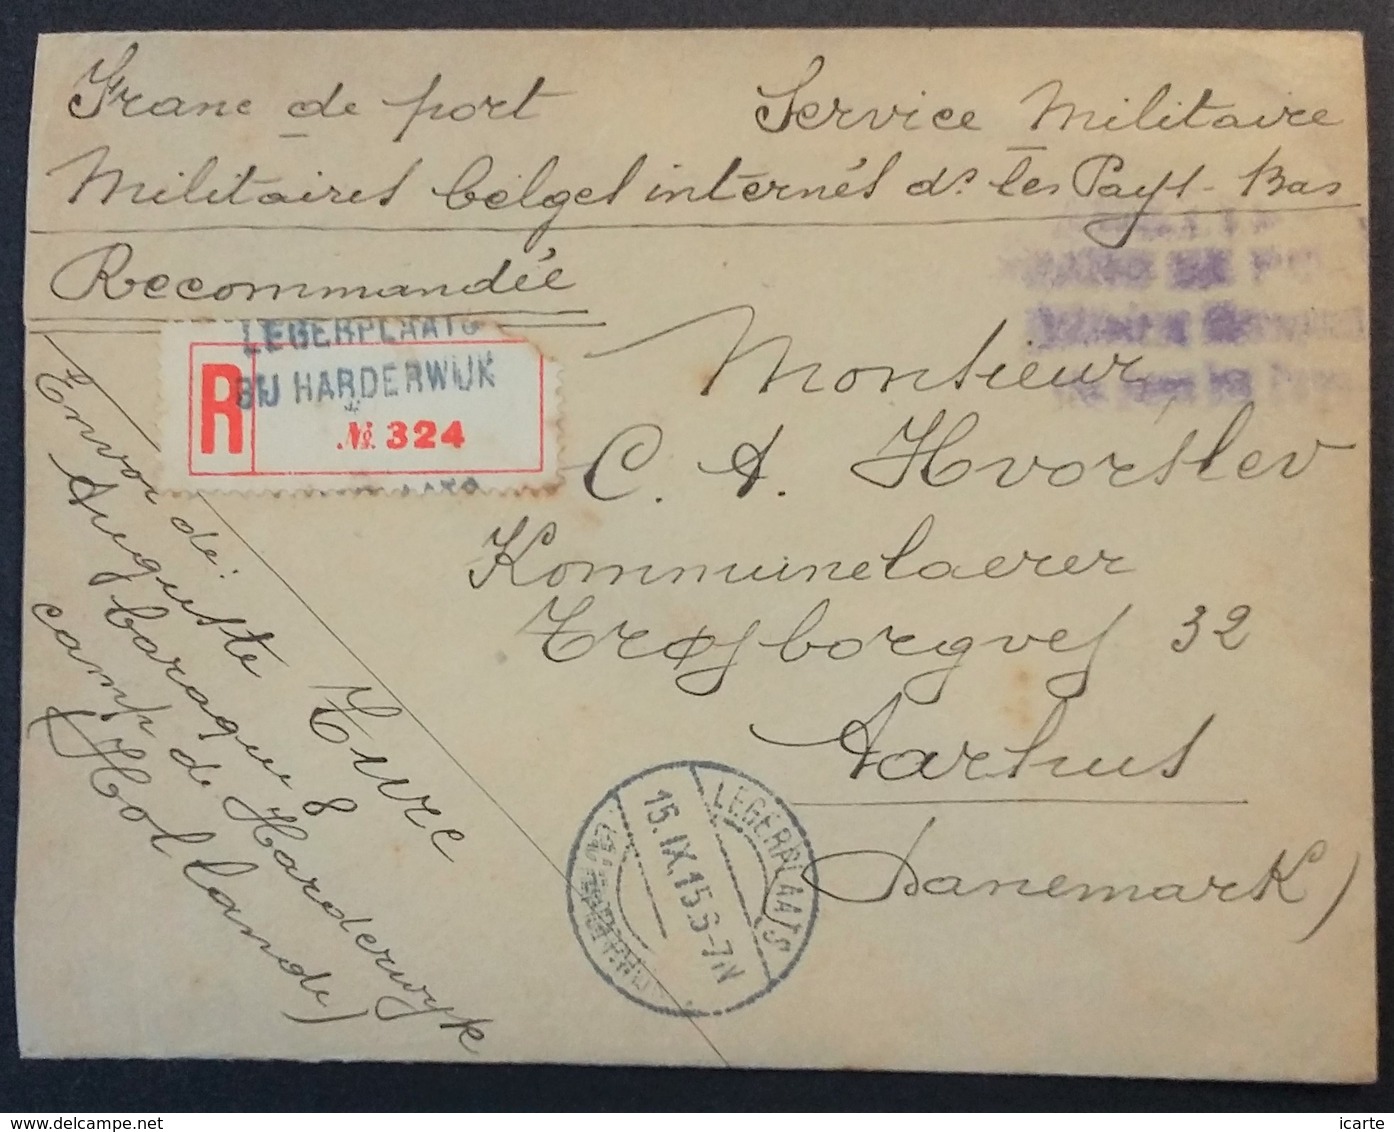 Franc de port Service Militaire
Militaires belges internés ds les Pays-Bas
Recommandée
LEGERPLAATS
BIJ HARDERWIJK
R
№ 324
Monsieur
C. A. Hvorslev
Kommunelaerer
Trøjborgvej 32
Aarhus
Danemark)
Envoi de:
Auguste Ture
baraque 8
camp de Harderwyk
(Hollande)
LEGERPLAATS
15.IX.15.6-7N
icarte